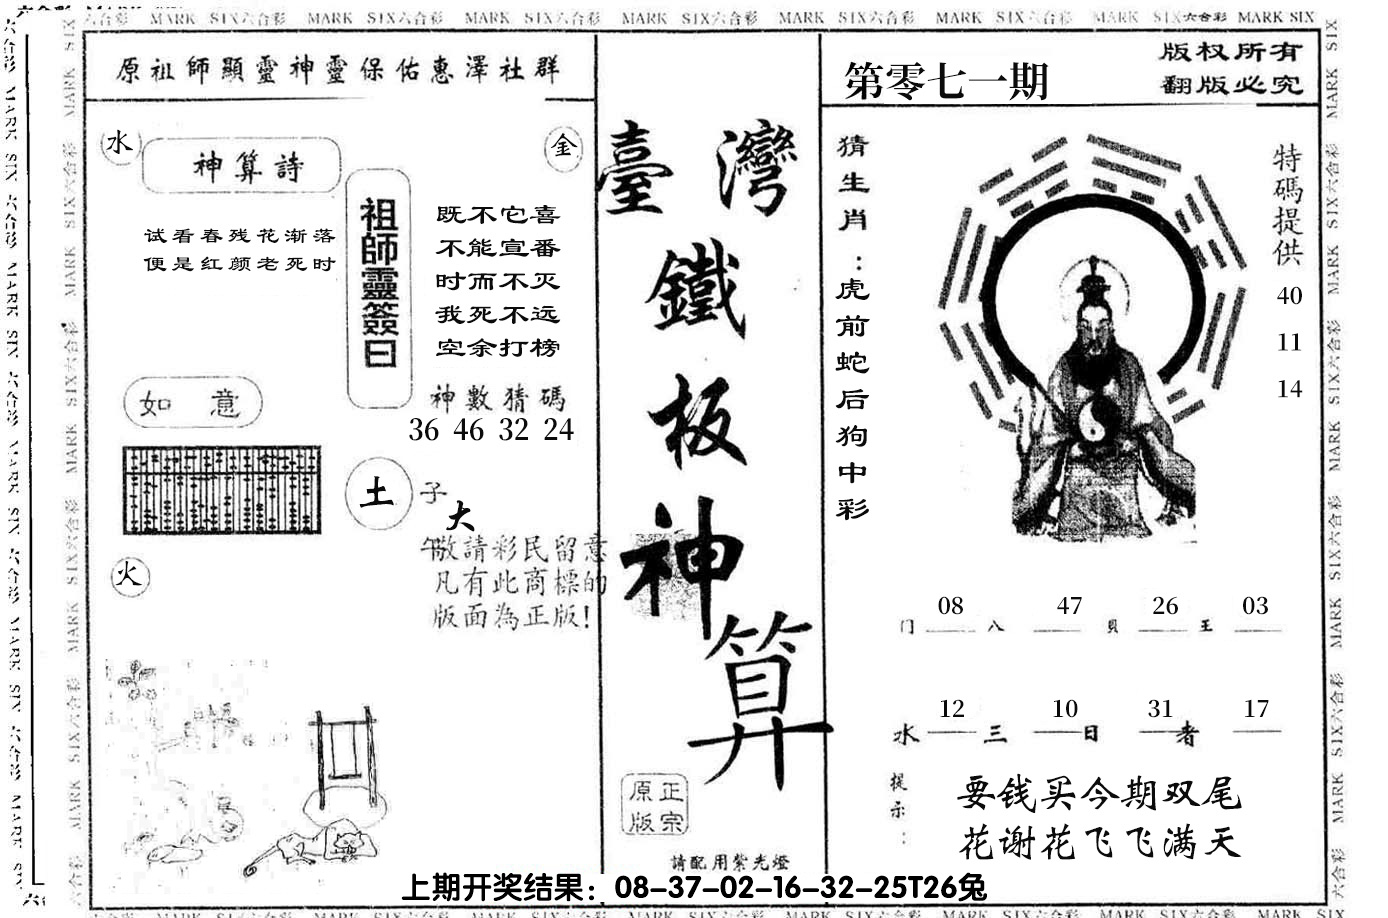 MARK SIX六合彩 MARK SIX六合彩 MARK SIX六合彩 MARK SIX六合彩 MARK SIX六合彩 MARK SIX六合彩 MARK SIX六合彩 MARK SIX
原祖師顯靈神靈保佑惠澤社群
水
金
神算詩
试看春残花渐落
便是红颜老死时
祖師靈簽曰
既不它喜
不能宣番
时而不灭
我死不远
空余打榜
神數猜碼
36 46 32 24
如意
土
子
大
午
敬請彩民留意
凡有此商標的
版面為正版!
火
臺灣
鐵
板
神
算
正宗
原版
請配用紫光燈
第零七一期
版权所有
翻版必究
猜生肖:虎前蛇后狗中彩
特碼提供
40
11
14
08 47 26 03
门 八 贝 王
12 10 31 17
水 三 日 者
提示:
要钱买今期双尾
花谢花飞飞满天
上期开奖结果：08-37-02-16-32-25T26兔